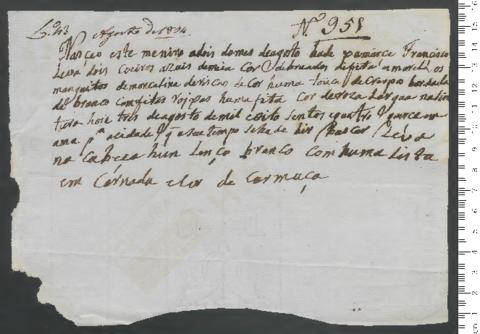 Agosto de 1804
Nº 958
Nasceo este menino a dois do mes de agosto hade chamarce Francisco
Leva dois coeiros azuis de meia cor debruados de fita amarela os
manguitos de marcelina de riscas de cor huma toica de crespo bordada
de branco com fitos roxas huma fita cor de roza larga na sin
tura hoje tres de agosto de mil e oito sentos e quatro
ama pª a cidade q a seu tempo se ha de hir buscar Leva
na cabeca hun Lenço branco com huma Lista
em carnada e cor de